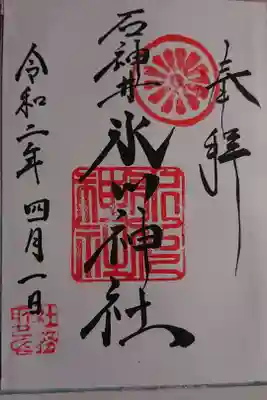 奉拝
石神井
氷川神社
氷川神社
令和二年 四月一日
社務所之印